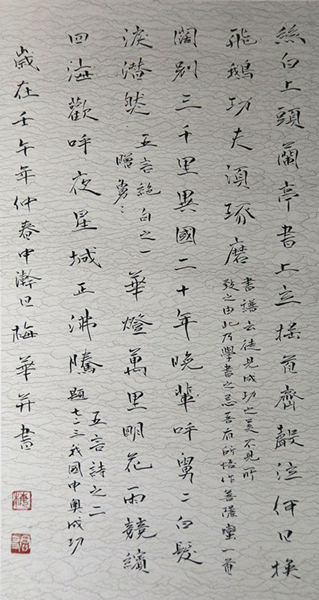 絲白上頭蘭亭書上立搖首齊縠泣何日换
飛鵝功夫須琢磨 書譜云徒見成功之美不見所
致之由此乃學書之忌吾有所悟作菩薩蠻一首
闊別三千里異國二十年晚輩呼舅舅白髮
淚潸然 五言絕句之一 華燈萬里明花雨競繽
贈勇
四海歡呼夜星城正沸騰 五言詩之二
題七一三我國申奧成功
歲在壬午年仲春中澣日梅華并書